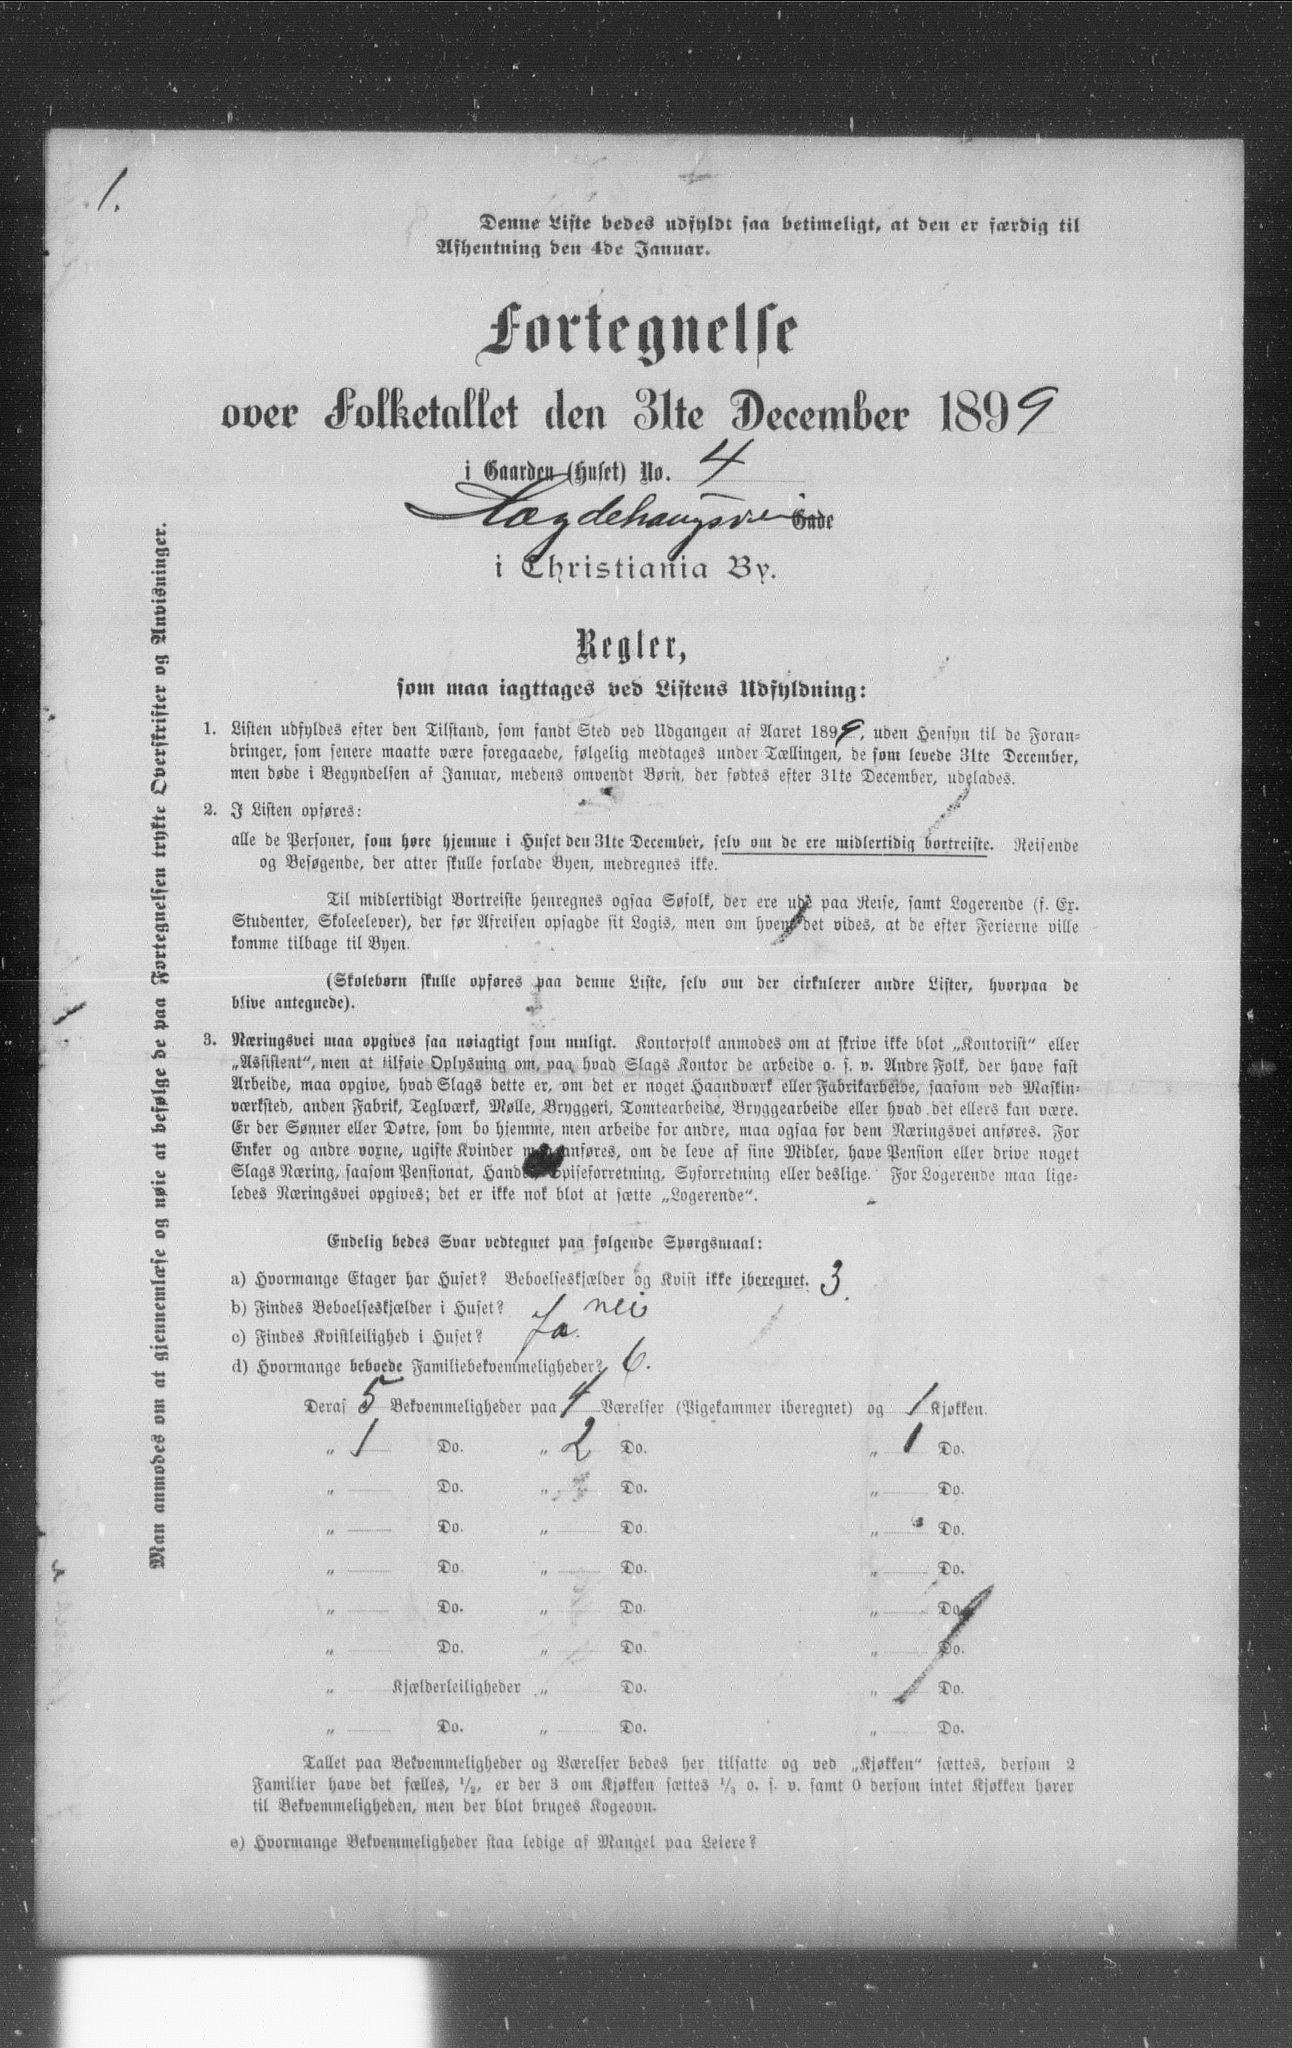 1.
Denne Liste bedes udfyldt saa betimeligt, at den er færdig til
Afhentning den 4de Januar.
Fortegnelse
over Folketallet den 31te December 1899
i Gaarden (Huset) No. 4
Gade
i Christiania By.
Regler,
som maa iagttages ved Listens Udfyldning:
1. Listen udfyldes efter den Tilstand, som fandt Sted ved Udgangen af Aaret 1899, uden Hensyn til de Foran-
dringer, som senere maatte være foregaaede, følgelig medtages under Tællingen, de som levede 31te December,
men døde i Begyndelsen af Januar, medens omvendt Børn, der fødtes efter 31te December, udelades.
2. I Listen opføres:
alle de Personer, som høre hjemme i Huset den 31te December, selv om de ere midlertidig bortreiste. Reisende
og Besøgende, der atter skulle forlade Byen, medregnes ikke.
Til midlertidigt Bortreiste henregnes ogsaa Søfolk, der ere ude paa Reise, samt Logerende (f. Ex.
Studenter, Skoleelever), der før Afreisen opsagde sit Logis, men om hvem det vides, at de efter Ferierne ville
komme tilbage til Byen.
(Skolebørn skulle opføres paa denne Liste, selv om der cirkulerer andre Lister, hvorpaa de
blive antegnede).
3. Næringsvei maa opgives saa nøiagtigt som muligt. Kontorfolk anmodes om at skrive ikke blot „Kontorist“ eller
„Assistent“, men at tilføie Oplysning om, paa hvad Slags Kontor de arbeide o. s. v. Andre Folk, der have fast
Arbeide, maa opgive, hvad Slags dette er, om det er noget Haandværk eller Fabrikarbeide, saasom ved Maskin-
værksted, anden Fabrik, Teglværk, Mølle, Bryggeri, Tomtearbeide, Bryggearbeide eller hvad det ellers kan være.
Er der Sønner eller Døtre, som bo hjemme, men arbeide for andre, maa ogsaa for dem Næringsvei anføres. For
Enker og andre vorne, ugifte Kvinder maa anføres, om de leve af sine Midler, have Pension eller drive noget
Slags Næring, saasom Pensionat, Handel, Spiseforretning, Syforretning eller deslige. For Logerende maa lige-
ledes Næringsvei opgives; det er ikke nok blot at sætte „Logerende“.
Endelig bedes Svar vedtegnet paa følgende Spørgsmaal:
a) Hvormange Etager har Huset? Beboelseskjælder og Kvist ikke iberegnet. 3.
b) Findes Beboelseskjælder i Huset? nei
c) Findes Kvistleilighed i Huset? Ja.
d) Hvormange beboede Familiebekvemmeligheder? 6.
Deraf 5 Bekvemmeligheder paa 4 Værelser (Pigekammer iberegnet) og 1 Kjøkken.
„ 1 Do. „ 2 Do. „ 1 Do.
„ Do. „ Do. „ Do.
„ Do. „ Do. „ Do.
„ Do. „ Do. „ Do.
„ Do. „ Do. „ Do.
„ Do. „ Do. „ Do.
„ Kjælderleiligheder „ Do. „ Do.
„ Do. „ Do. „ Do.
Tallet paa Bekvemmeligheder og Værelser bedes her tilsatte og ved „Kjøkken“ sættes, dersom 2
Familier have det fælles, 1/2, er der 3 om Kjøkken sættes 1/3 o. s. v. samt 0 dersom intet Kjøkken hører
til Bekvemmeligheden, men der blot bruges Kogeovn.
e) Hvormange Bekvemmeligheder staa ledige af Mangel paa Leiere?
Man anmodes om at gjennemlæse og nøie at befølge de paa Fortegnelsen trykte Overskrifter og Anvisninger.